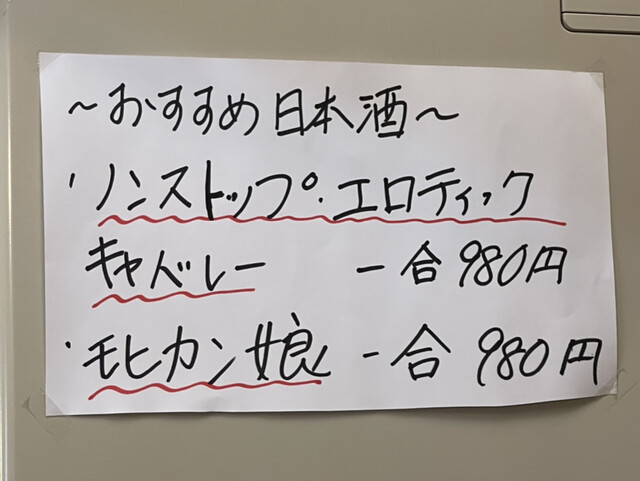 ~おすすめ日本酒~
・ノンストップ・エロティック
キャバレー 一合980円
・モヒカン娘 一合 980円